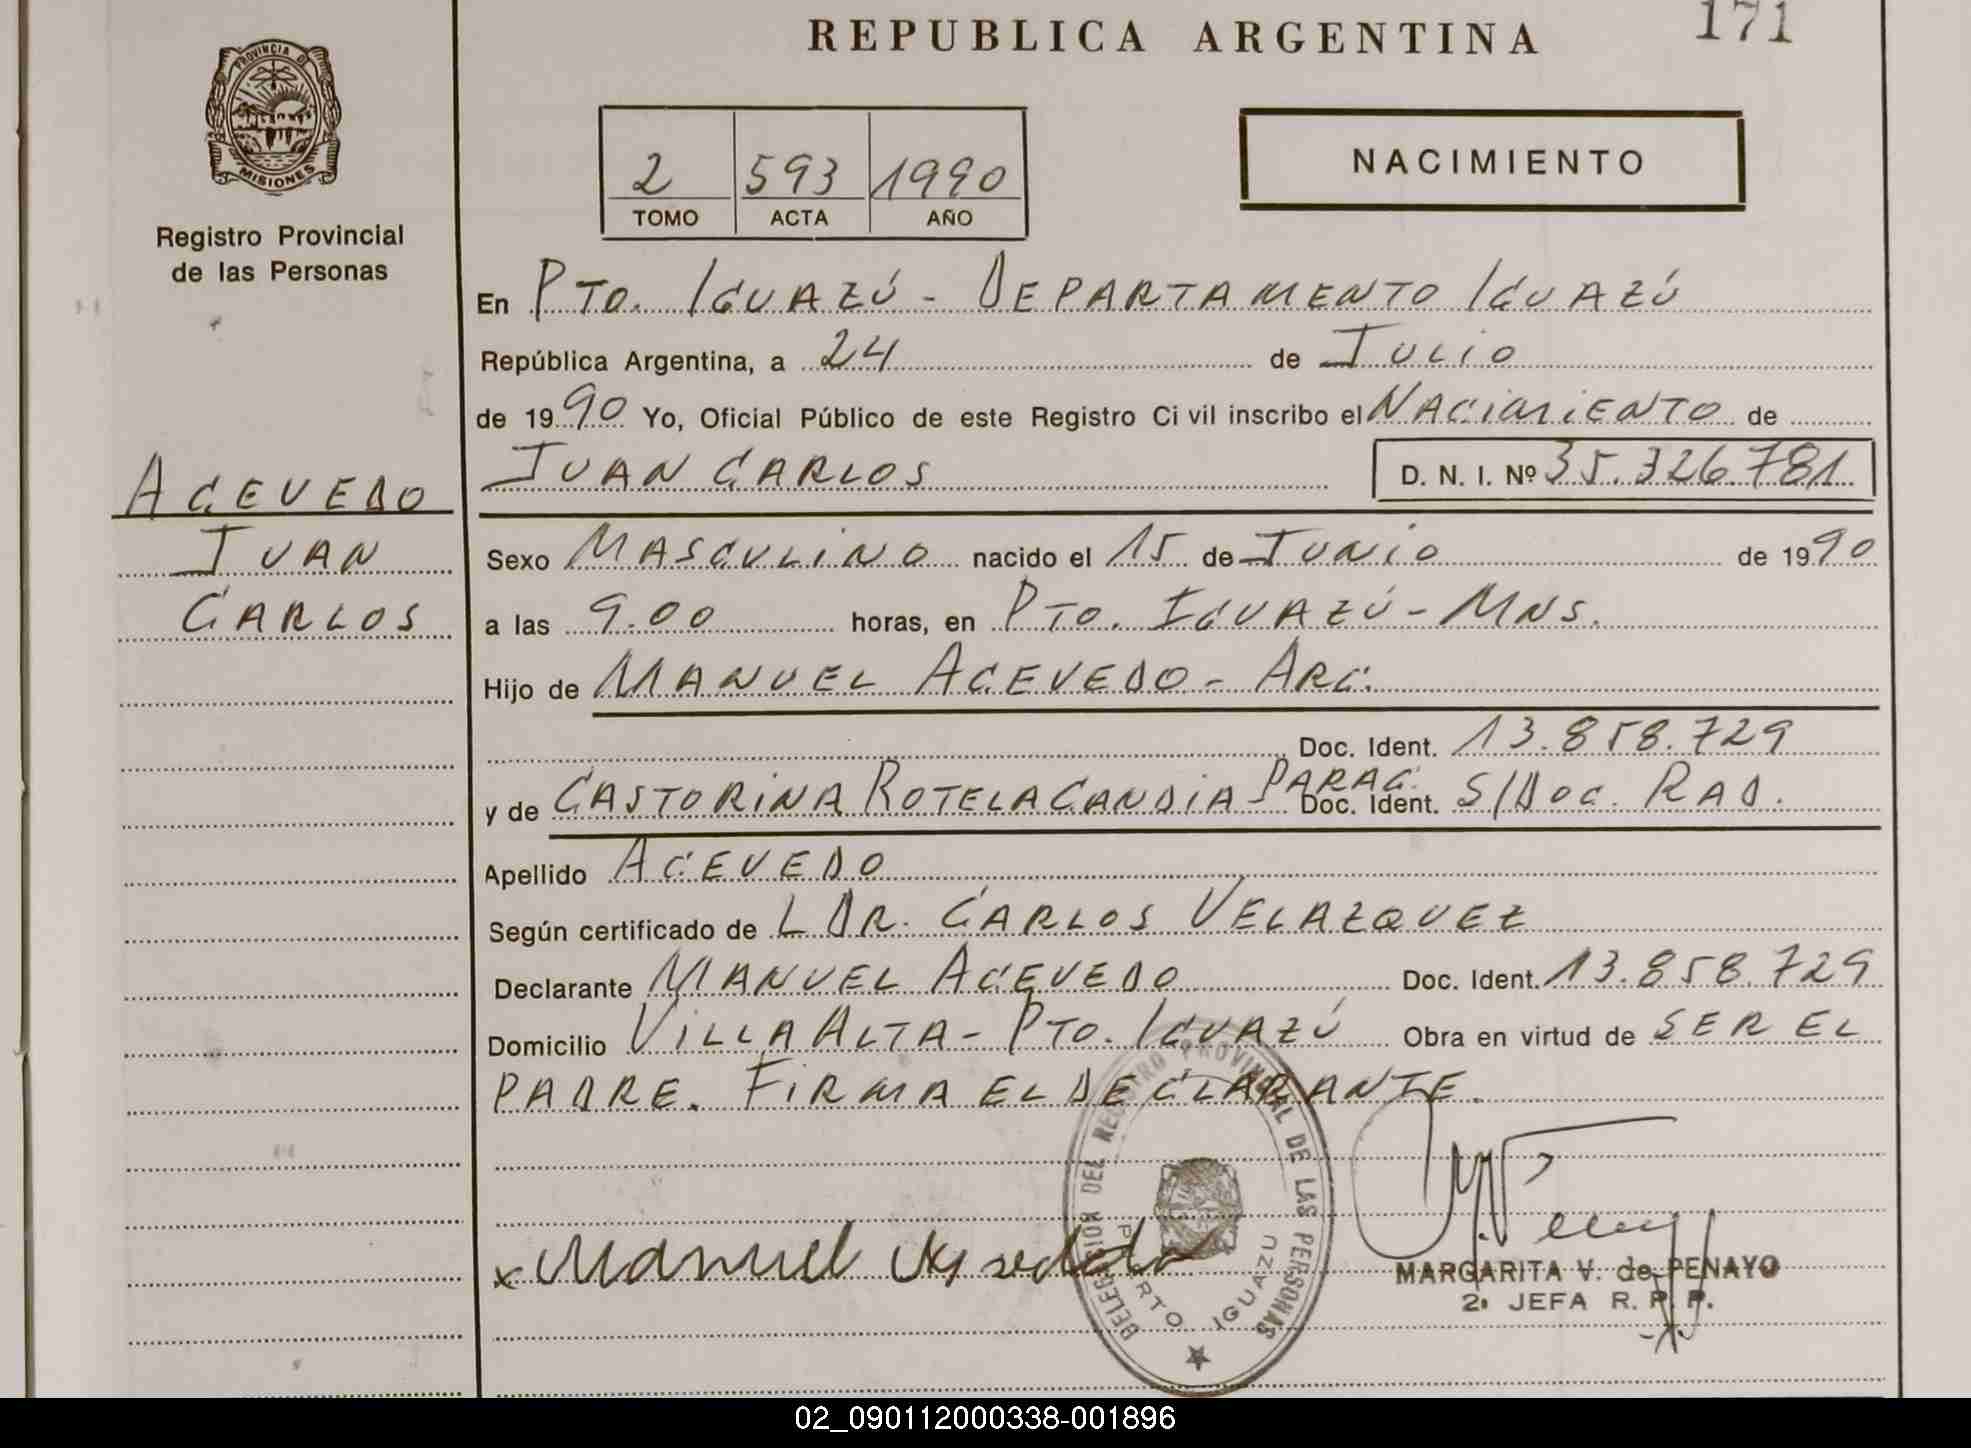 REPUBLICA ARGENTINA
171
PROVINCIA DE
MISIONES
Registro Provincial
de las Personas
2 593 1990
TOMO ACTA AÑO
NACIMIENTO
En PTO. IGUAZÚ - DEPARTAMENTO IGUAZÚ
República Argentina, a 24 de JULIO
de 1990 Yo, Oficial Público de este Registro Civil inscribo el NACIMIENTO de
JUAN CARLOS D. N. I. Nº 35.326.781.
ACEVEDO
JUAN
CARLOS
Sexo MASCULINO nacido el 15 de JUNIO de 1990
a las 9.00 horas, en PTO. IGUAZÚ - MNS.
Hijo de MANUEL ACEVEDO - ARG.
Doc. Ident. 13.858.729
y de CASTORINA ROTELA CANDIA - PARAG. Doc. Ident. S/DOC. RAD.
Apellido ACEVEDO
Según certificado de L DR. CARLOS VELAZQUEZ
Declarante MANUEL ACEVEDO Doc. Ident. 13.858.729
Domicilio VILLA ALTA - PTO. IGUAZÚ Obra en virtud de SER EL
PADRE. FIRMA EL DECLARANTE.
DELEGACION DEL REGISTRO PROVINCIAL DE LAS PERSONAS
PUERTO IGUAZU
x Manuel
MARGARITA V. de PENAYO
2ª JEFA R. P. P.
02_090112000338-001896